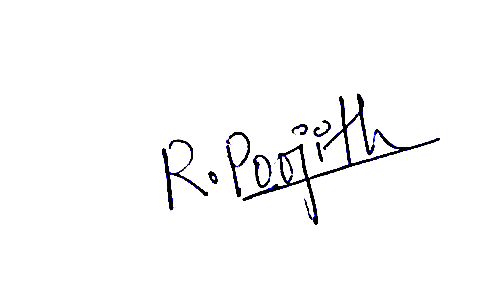 R. Poojith